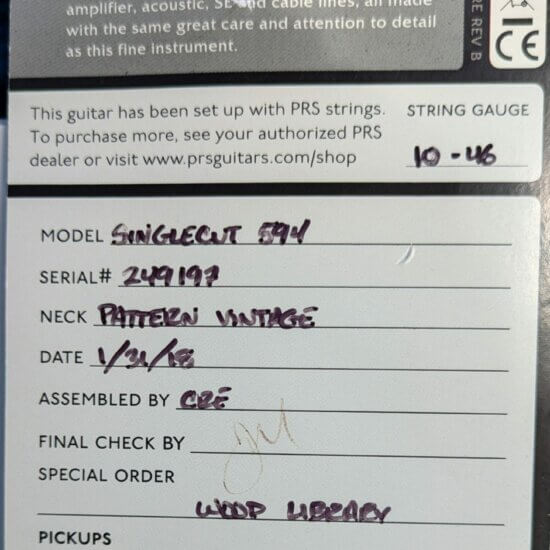 amplifier, acoustic, SE and cable lines, all made
with the same great care and attention to detail
as this fine instrument.
RE REV B
CE
This guitar has been set up with PRS strings.
To purchase more, see your authorized PRS
dealer or visit www.prsguitars.com/shop
STRING GAUGE
10-46
MODEL SINGLECUT 594
SERIAL# 249197
NECK PATTERN VINTAGE
DATE 1/31/18
ASSEMBLED BY
FINAL CHECK BY
SPECIAL ORDER
WOOD LIBRARY
PICKUPS